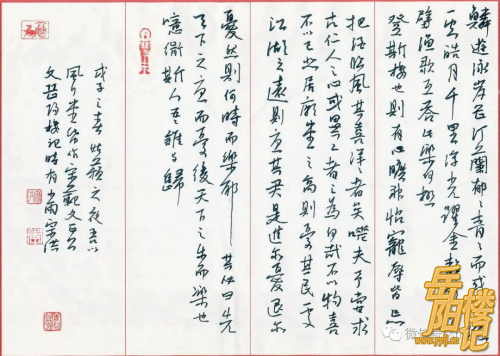 鱗游泳岸芷汀蘭郁〻青〻而或
一空皓月千里浮光躍金
璧漁歌互答此樂何極
登斯樓也則有心曠神怡寵辱皆忘
把酒臨風其喜洋〻者矣嗟夫予嘗求
古仁人之心或異二者之為何哉不以物喜
不以己悲居廟堂之高則憂其民處
江湖之遠則憂其君是進亦憂退亦
憂然則何時而樂耶其必曰先
天下之憂而憂後天下之樂而樂也
噫微斯人吾誰與歸
戊子之春之夜吾以
文岳陽樓記時有小雨
岳阳楼记